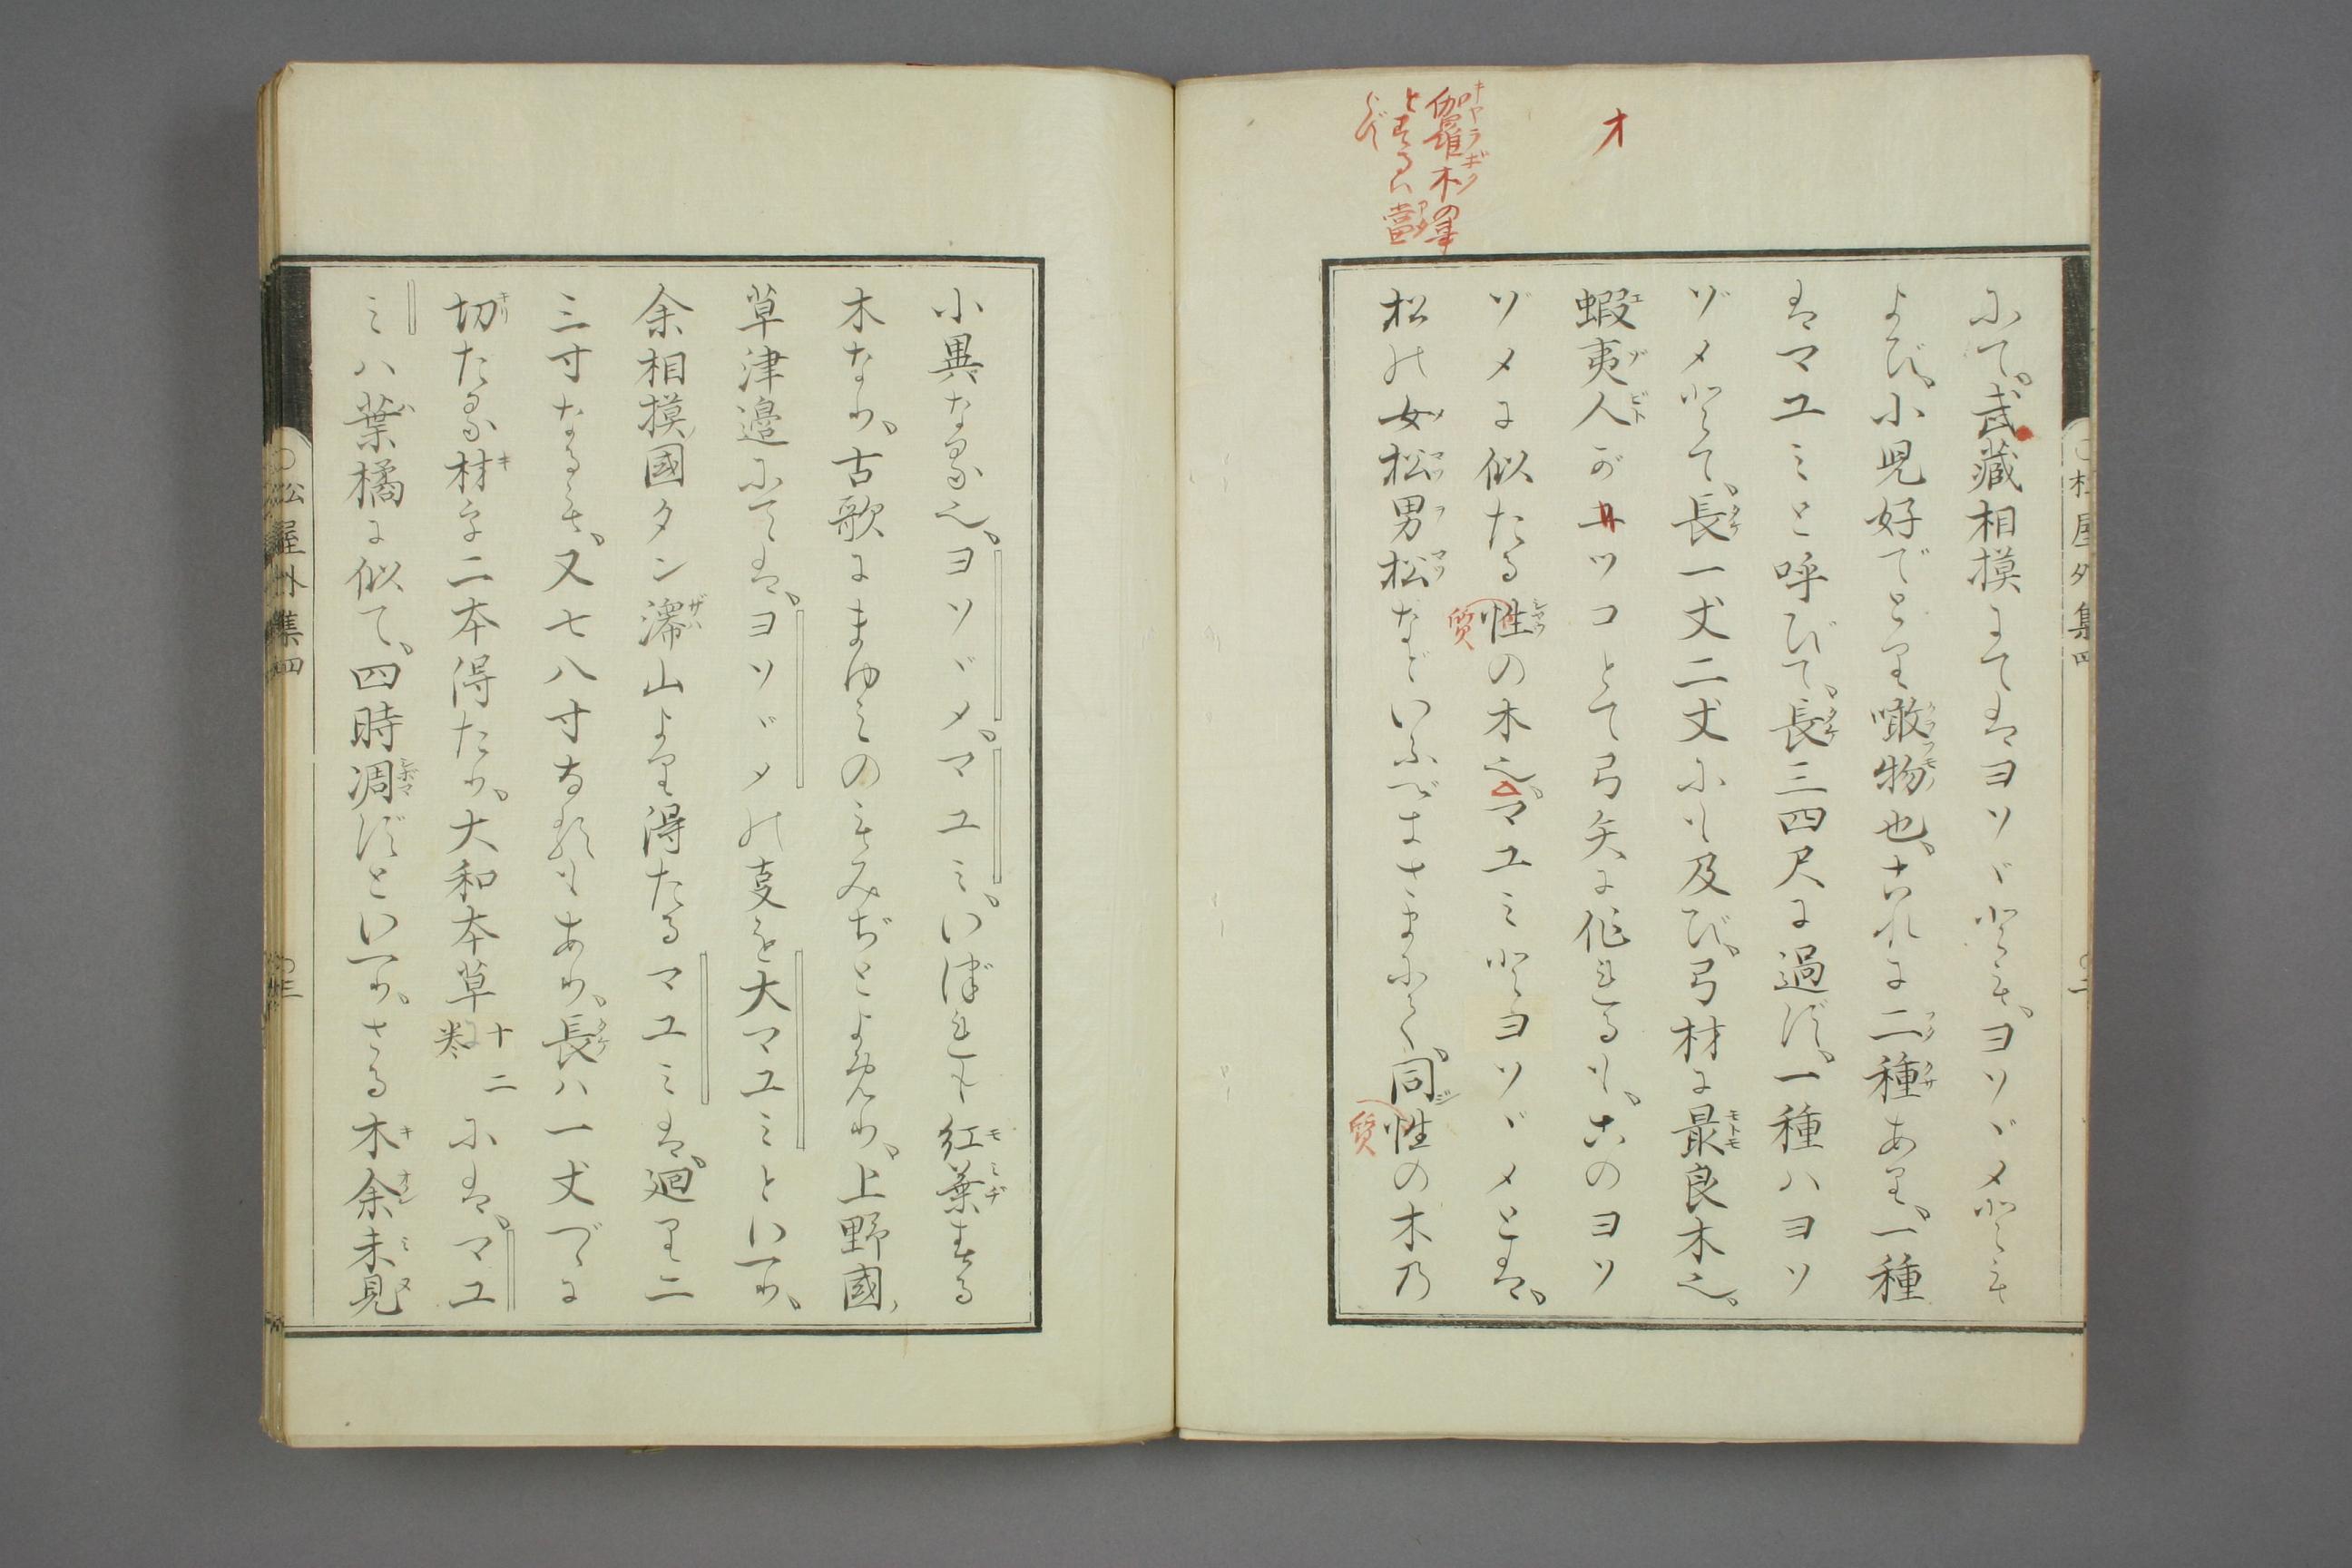 オ
伽羅木の事
とするは當
らず
にて、武藏相摸にてはヨソヾともヨソヾメとも
よび、小児好でとり噉物也、これに二種あり、一種
はマユミと呼びて、長三四尺に過ず、一種ハヨソ
ヅメとて、長一丈二丈にも及び、弓材に最良木也、
蝦夷人がオツコとて弓矢に作れるも、このヨソ
ヅメに似たる性の木也、マユミとヨソヾメとは、
質
松の女松男松などいふべきさまにて、同性の木乃
質
小異なる也、ヨソヾメ、マユミ、いづれも紅葉する
木なり、古歌にまゆみのもみぢとよめり、上野國
草津邉にては、ヨソヾメの叓を大マユミといへり、
余相摸國タン澤山より得たるマユミは、廻り二
三寸なるも、又七八寸なるもあり、長ハ一丈づゝに
切たる材を二本得たり、大和本草十二巻には、マユ
ミハ葉橘に似て、四時凋ずといへり、さる木余未見
松屋外集四
〇松屋外集四